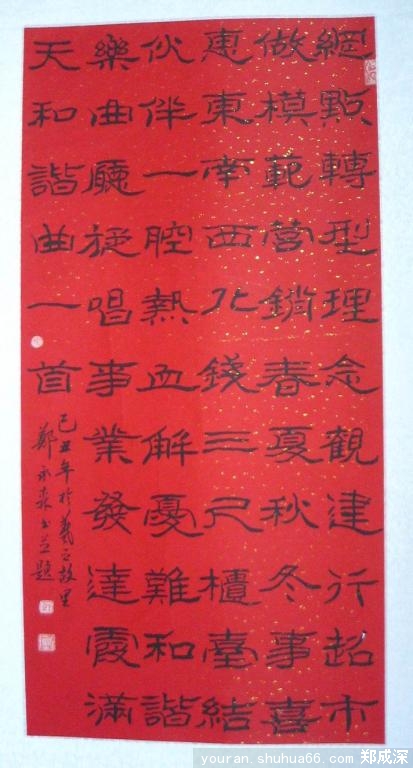 網點轉型理念觀建行超市
做模範營銷春夏秋冬事喜
惠東南西北錢三尺櫃臺結
伙伴一腔熱血解憂難和諧
樂曲廳旋唱事業發達霞滿
天和諧曲一首
己丑年於羲之故里
鄭承森書並題
youran.shuhua66.com 郑成深